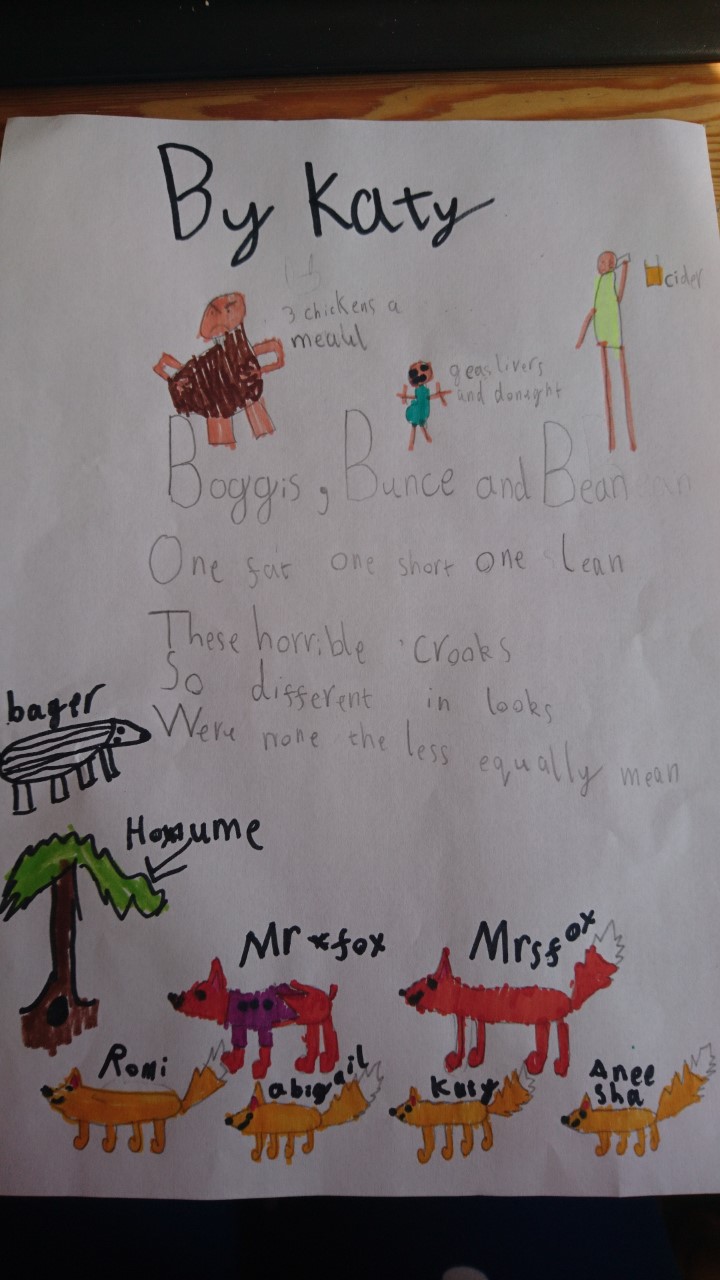 By Katy
3 chickens a
meall
cider
geas livers
and donught
Boggis, Bunce and Bean
One fat one short one lean
These horrible crooks
So different in looks
Were none the less equally mean
bager
Mr fox
Mrs fox
Romi
abigail
Katy
Anee
sha